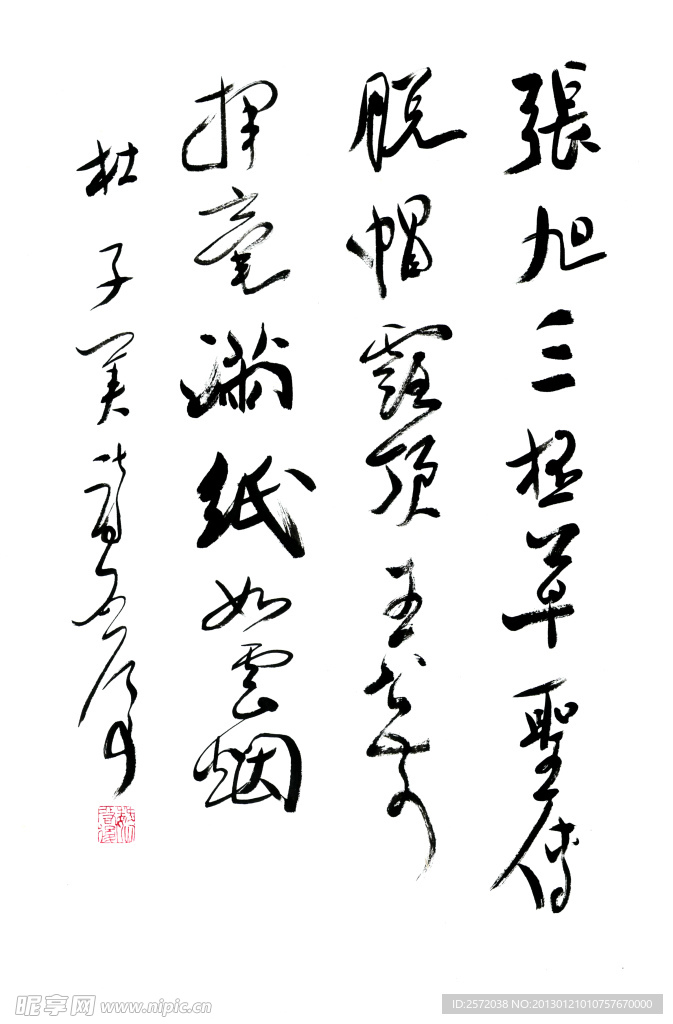 張旭三杯草聖傳
脱帽露頂王公前
揮毫滿紙如雲烟
杜子美詩
昵享网 www.nipic.cn
ID:2572038 NO:20130121010757670000